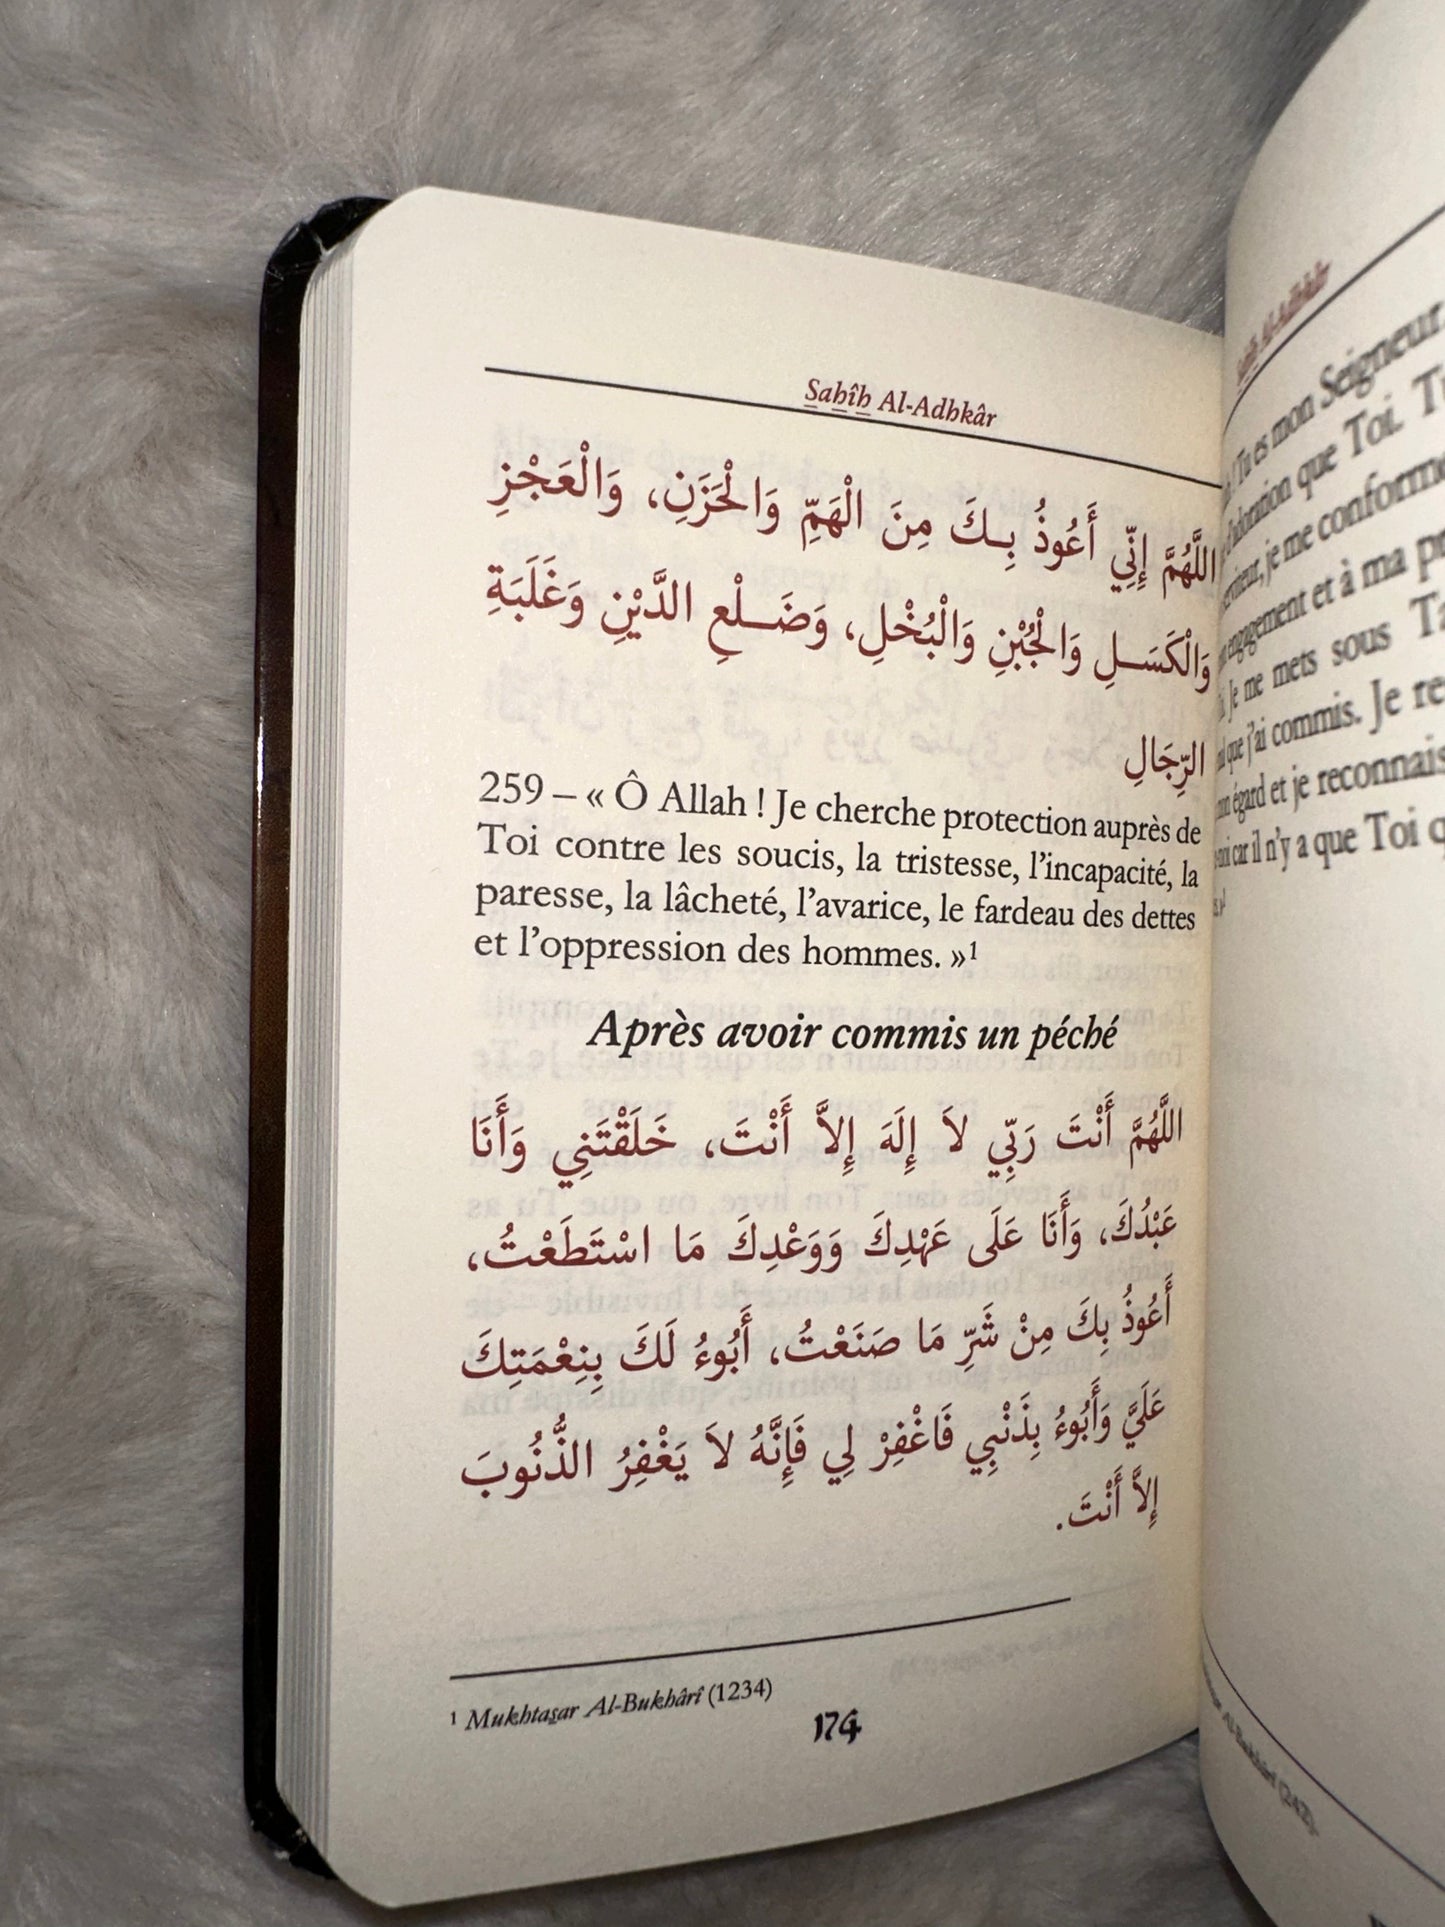 Sahîh Al-Adhkâr
اللَّهُمَّ إِنِّي أَعُوذُ بِـكَ مِنَ الْهَمِّ وَالْحَزَنِ، وَالْعَجْزِ
وَالْكَسَـــلِ وَالْجُبْنِ وَالْبُخْلِ، وَضَـــلْعِ الدَّيْنِ وَغَلَبَةِ
الرِّجَالِ
259 – « Ô Allah ! Je cherche protection auprès de
Toi contre les soucis, la tristesse, l'incapacité, la
paresse, la lâcheté, l'avarice, le fardeau des dettes
et l'oppression des hommes. »¹
Après avoir commis un péché
اللَّهُمَّ أَنْتَ رَبِّي لاَ إِلَهَ إِلاَّ أَنْتَ، خَلَقْتَنِي وَأَنَا
عَبْدُكَ، وَأَنَا عَلَى عَهْدِكَ وَوَعْدِكَ مَا اسْتَطَعْتُ،
أَعُوذُ بِكَ مِنْ شَرِّ مَا صَنَعْتُ، أَبُوءُ لَكَ بِنِعْمَتِكَ
عَلَيَّ وَأَبُوءُ بِذَنْبِي فَاغْفِرْ لِي فَإِنَّهُ لاَ يَغْفِرُ الذُّنُوبَ
إِلاَّ أَنْتَ.
¹ Mukhtasar Al-Bukhârî (1234)
174
Sahîh Al-Adhkâr
! Tu es mon Seigneur
d'adoration que Toi.
je me conforme
engagement et à ma
Je me mets sous
que j'ai commis. Je
mon égard et je reconnais
car il n'y a que Toi
Al-Bukhârî (242).